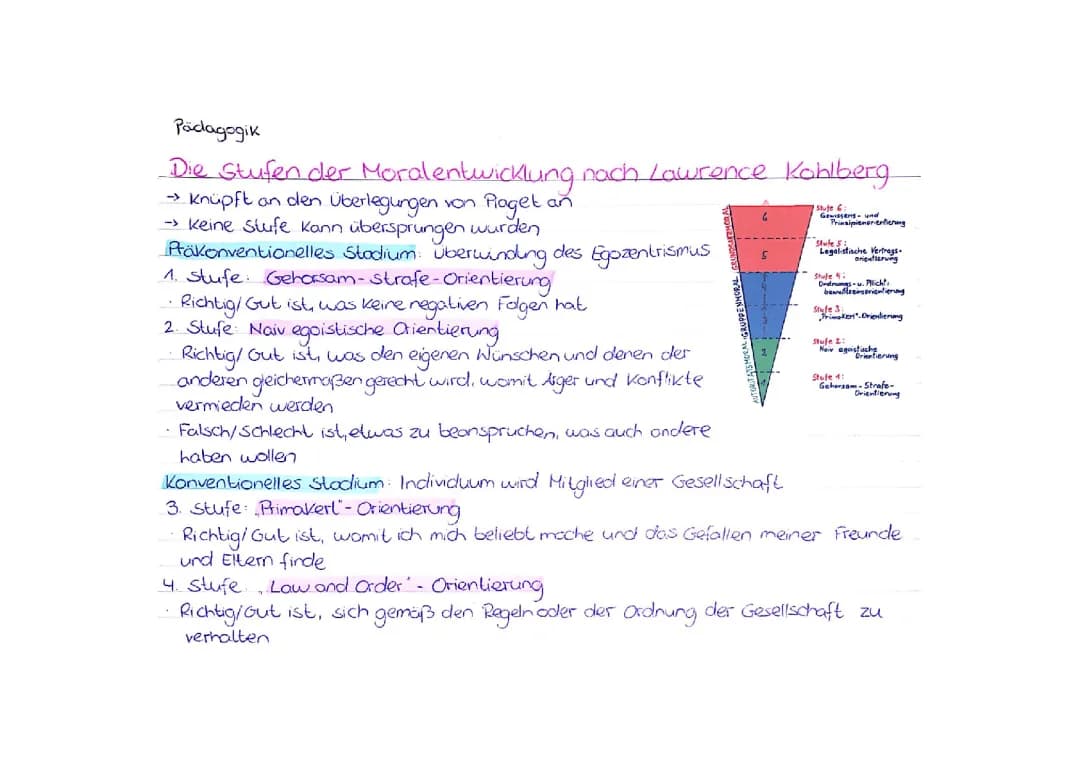 Pädagogik
Die Stufen der Moralentwicklung nach Lawrence Kohlberg
→ Knüpft an den Überlegungen von Piaget an
→ Keine Stufe kann übersprungen wurden
Präkonventionelles Stadium: Überwindung des Egozentrismus
1. Stufe: Gehorsam-Strafe-Orientierung
· Richtig/Gut ist, was keine negativen Folgen hat
2. Stufe: Naiv egoistische Orientierung
· Richtig/Gut ist, was den eigenen Wünschen und denen der
anderen gleichermaßen gerecht wird, womit Ärger und Konflikte
vermieden werden
· Falsch/Schlecht ist, etwas zu beanspruchen, was auch andere
haben wollen
Konventionelles Stadium: Individuum wird Mitglied einer Gesellschaft
3. Stufe: „Primakerl"-Orientierung
· Richtig/Gut ist, womit ich mich beliebt mache und das Gefallen meiner Freunde
und Eltern finde
4. Stufe: „Law and Order"-Orientierung
· Richtig/Gut ist, sich gemäß den Regeln oder der Ordnung der Gesellschaft zu
verhalten
GRUNDSATZMORAL
GRUPPENMORAL
AUTORITÄTSMORAL
6
5
4
3
2
1
Stufe 6:
Gewissens- und
Prinzipienorientierung
Stufe 5:
Legalistische Vertrags-
orientierung
Stufe 4:
Ordnungs- u. Pflicht-
bewußtseinsorientierung
Stufe 3:
„Primakerl"-Orientierung
Stufe 2:
Naiv egoistische
Orientierung
Stufe 1:
Gehorsam-Strafe-
Orientierung